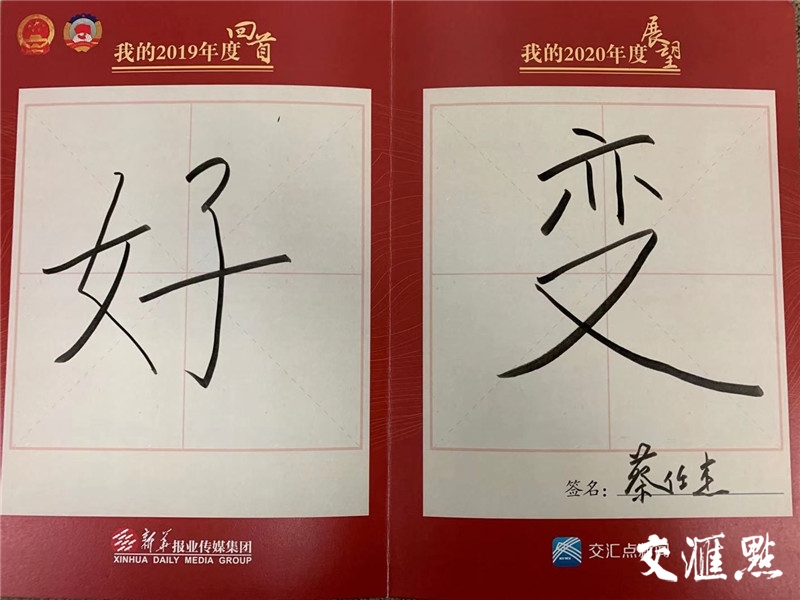 我的2019年度回首
好
新华报业传媒集团
XINHUA DAILY MEDIA GROUP
我的2020年度展望
变
签名：蔡
交汇点
交滙點